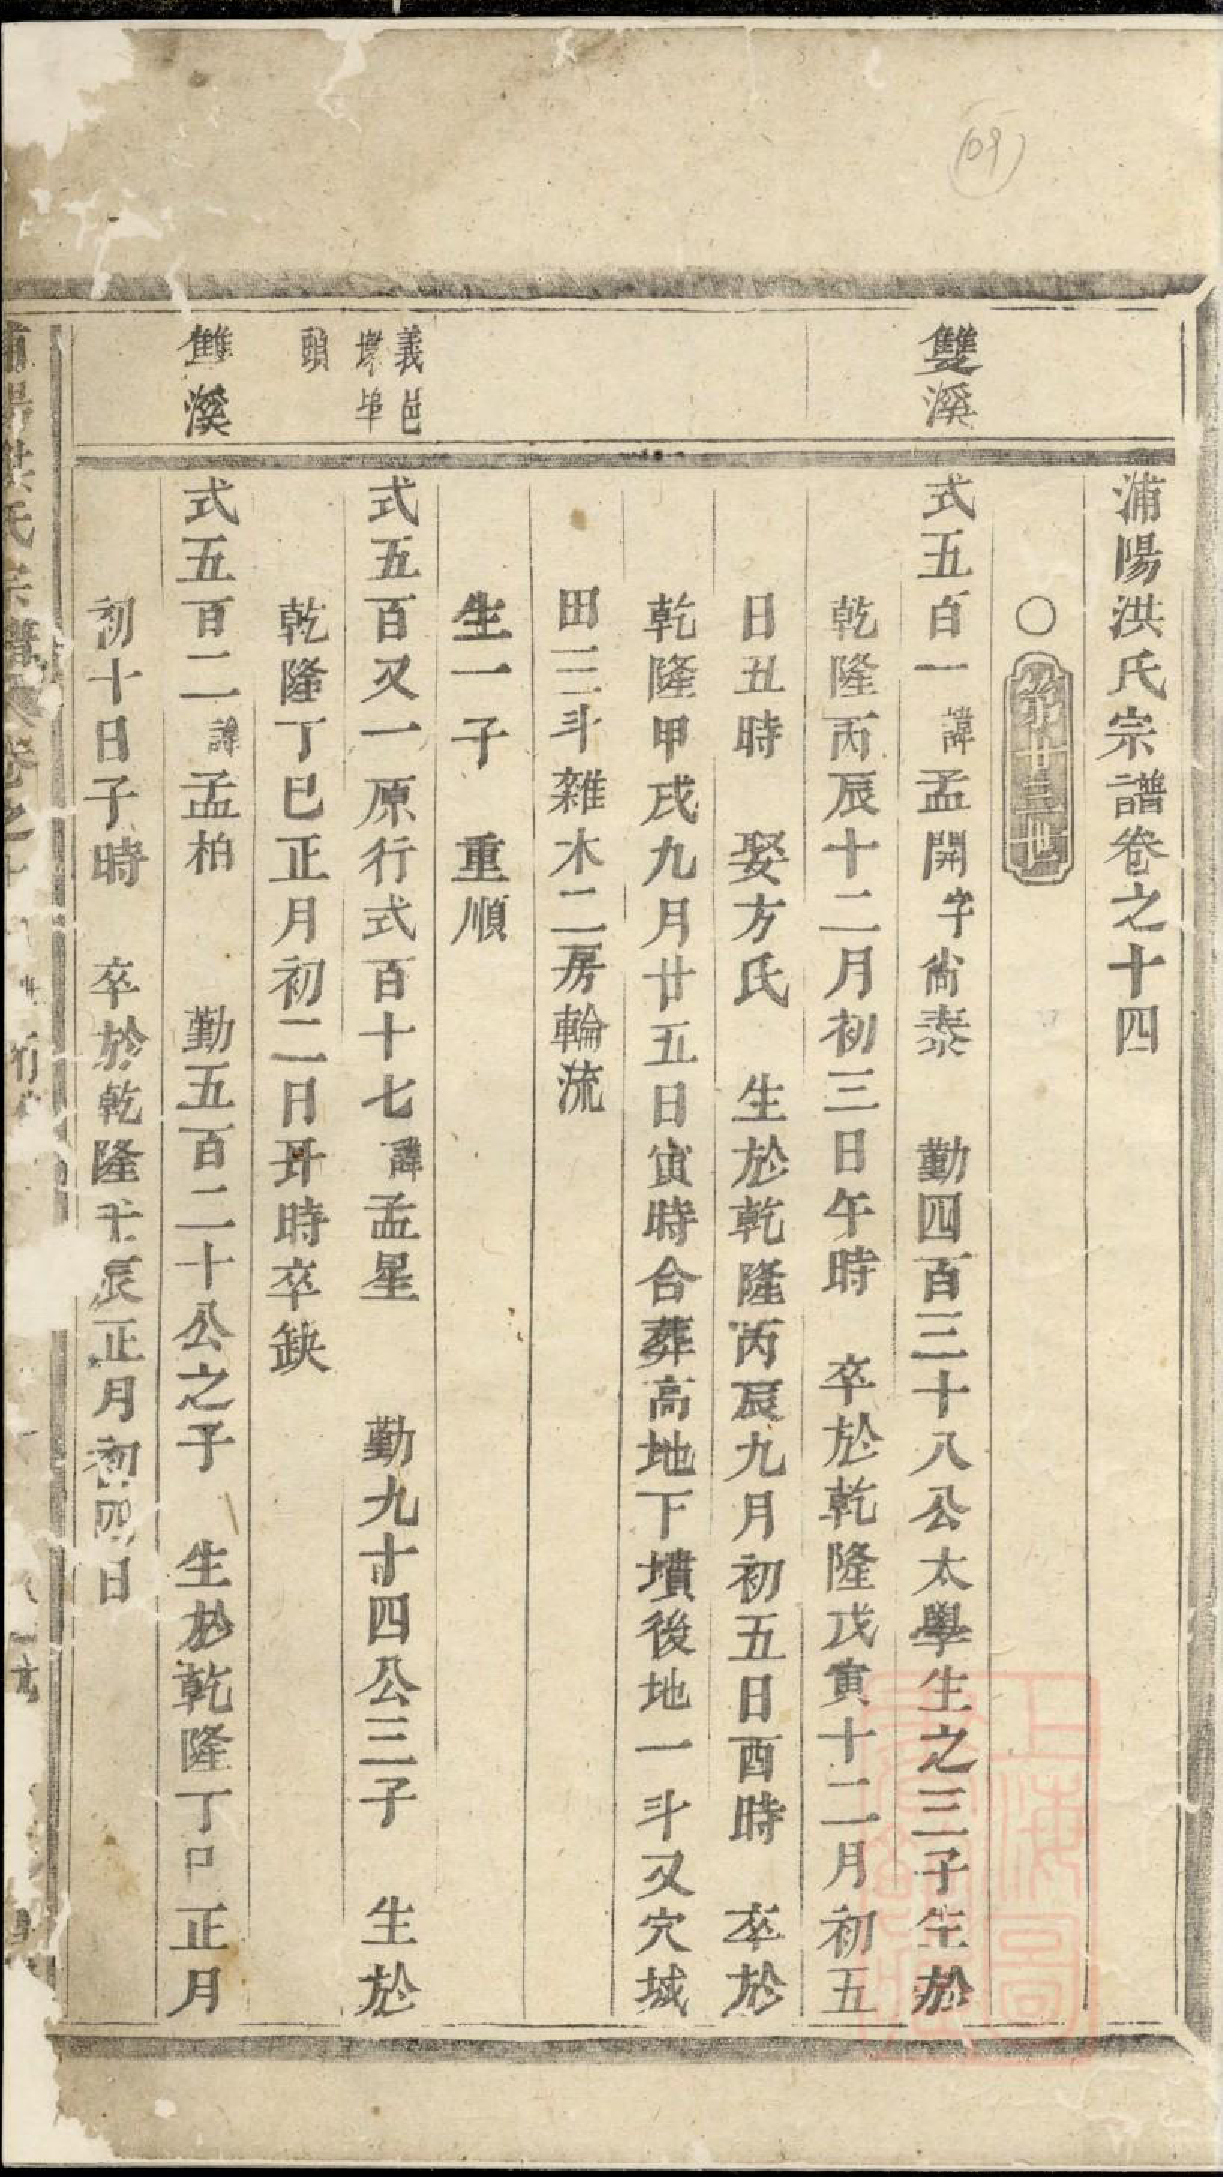 109
蒲陽洪氏宗譜卷之十四
○第廿三世
雙溪
式五百一諱孟開字尙泰　勤四百三十八公太學生之三子生於
乾隆丙辰十二月初三日午時　卒於乾隆戊寅十二月初五
日丑時　娶方氏　生於乾隆丙辰九月初五日酉時　卒於
乾隆甲戌九月廿五日寅時合葬高地下墳後地一斗又穴城
田三斗雜木二房輪流
生一子　重順
義邑
埠
頭
式五百又一原行式百十七諱孟星　勤九十四公三子　生於
乾隆丁巳正月初二日丑時卒缺
雙溪
式五百二諱孟柏　勤五百二十公之子　生於乾隆丁巳正月
初十日子時　卒於乾隆壬辰正月初四日
洪氏宗譜
卷之十
上海圖